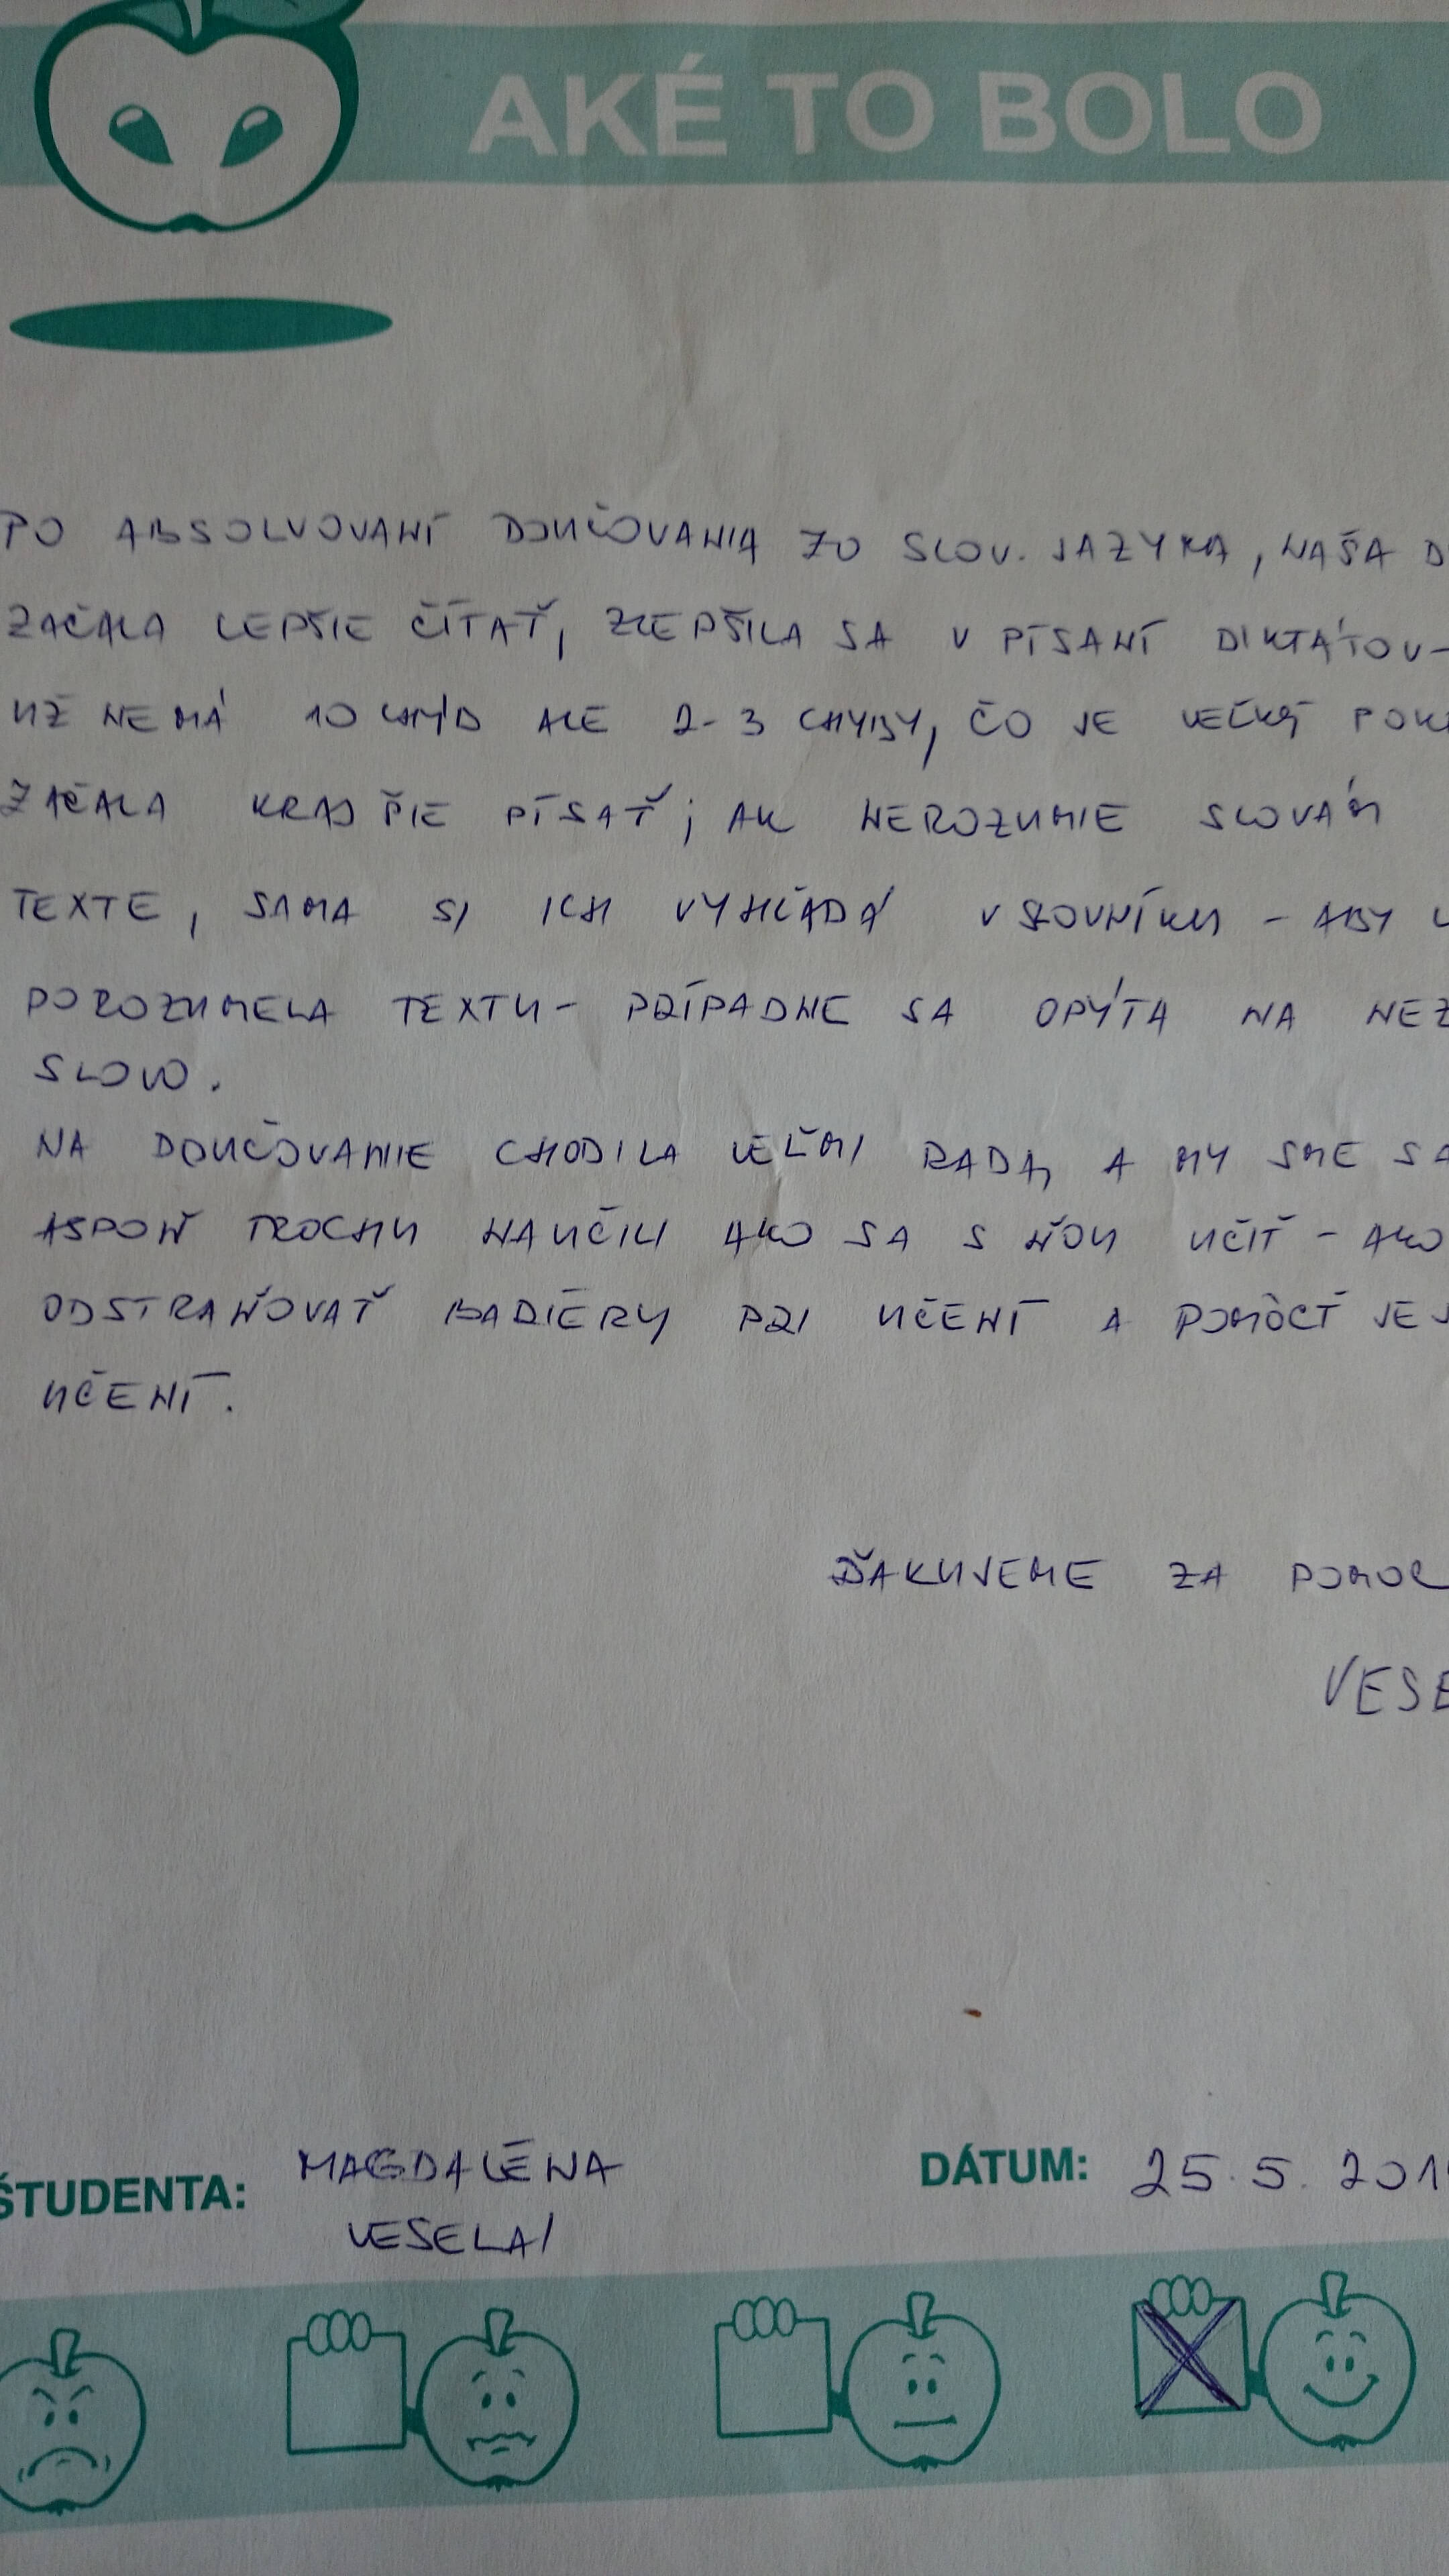 AKÉ TO BOLO
PO ABSOLVOVANÍ DOUČOVANIA ZO SLOV. JAZYKA, NAŠA D
ZAČALA LEPŠIE ČÍTAŤ, ZLEPŠILA SA V PÍSANÍ DIKTÁTOV-
UŽ NEMÁ 10 CHÝB ALE 2-3 CHYBY, ČO JE VEĽKÝ POK
ZAČALA KRAJŠIE PÍSAŤ; AK NEROZUMIE SLOVÁM
TEXTE, SAMA SI ICH VYHĽADÁ V SLOVNÍKU - ABY
POROZUMELA TEXTU - PRÍPADNE SA OPÝTA NA NEZ
SLOVO.
NA DOUČOVANIE CHODILA VEĽMI RADA, A MY SME SA
ASPOŇ TROCHU NAUČILI AKO SA S ŇOU UČIŤ - AKO
ODSTRAŇOVAŤ BARIÉRY PRI UČENÍ A POMÔCŤ JEJ
UČENÍ.
ĎAKUJEME ZA POMOC
VESE
ŠTUDENTA: MAGDALÉNA DÁTUM: 25.5.201
VESELÁ